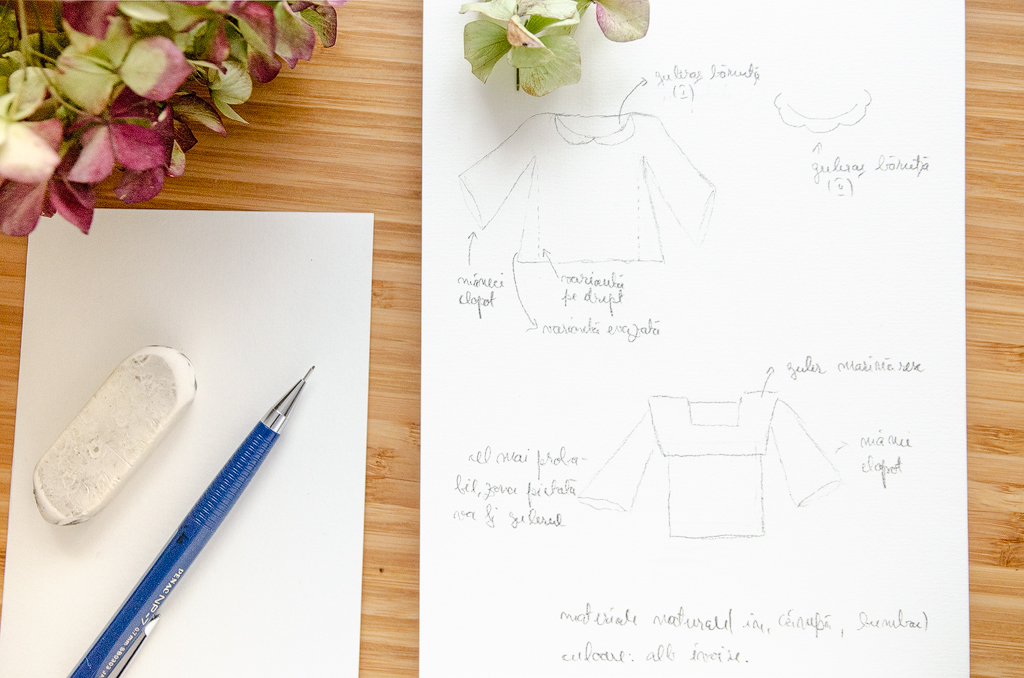 guleraș bănuță
(I)
guleraș bănuță
(II)
mâneci
clopot
variantă
pe drept
variantă evazată
guler marinăresc
mâneci
clopot
cel mai proba-
bil, zona pictată
va fi gulerul
materiale naturale (in, cânepă, bumbac)
culoare: alb ivoire.
PENAC NP-7
0.7mm